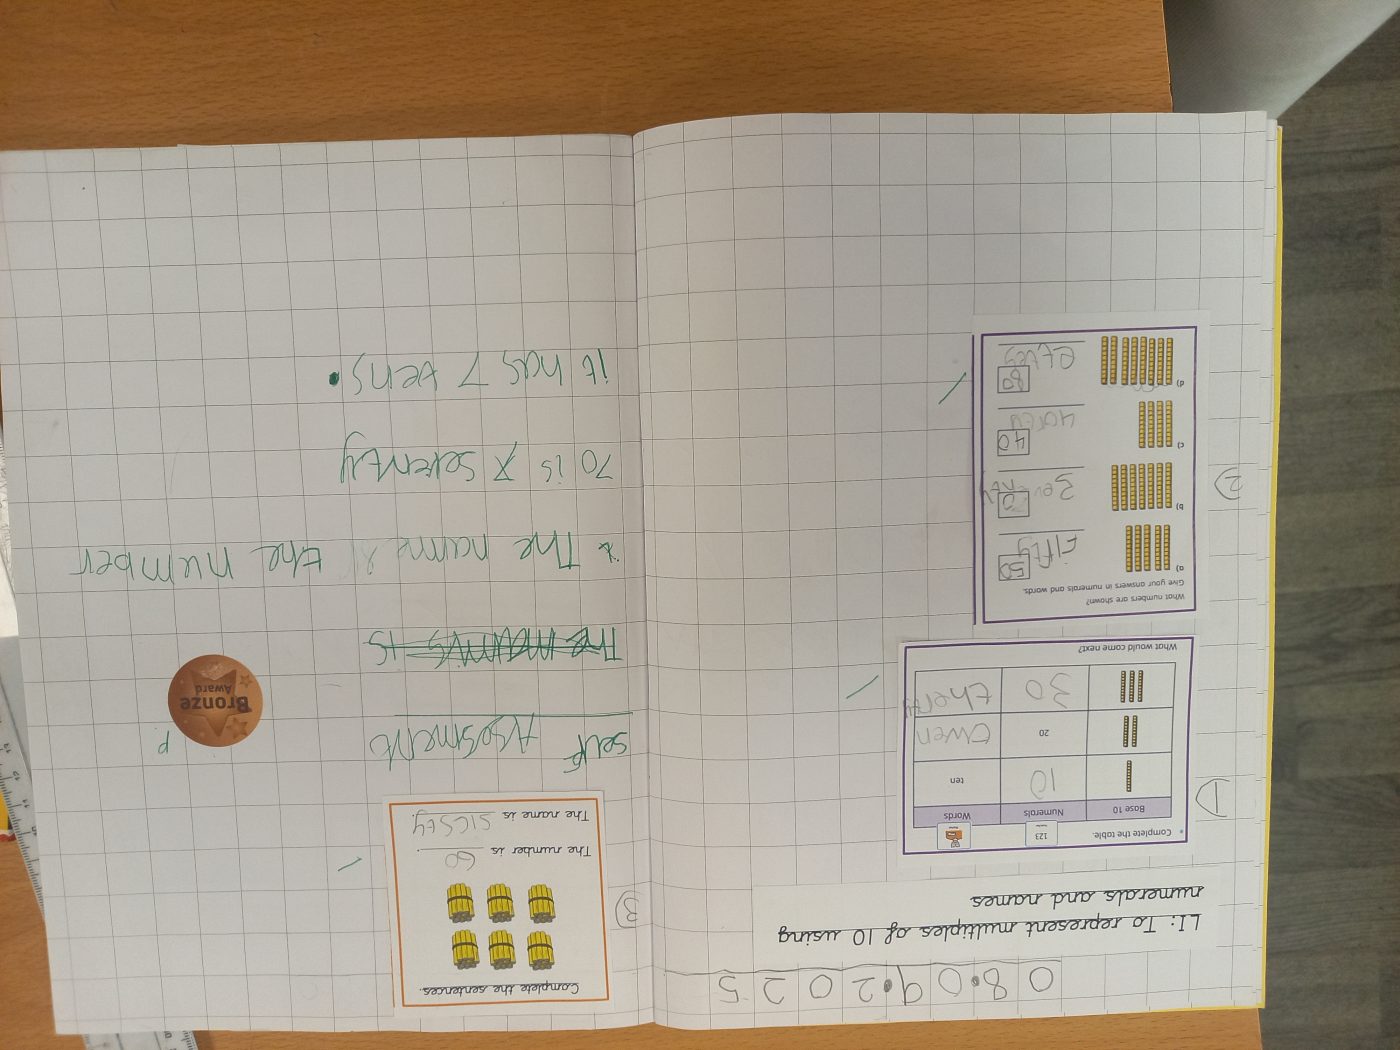 08.09.2025
LI: To represent multiples of 10 using
numerals and names
1
Complete the table.
123
Base 10 Numerals Words
10 ten
20 twen
30 therty
What would come next?
2
What numbers are shown?
Give your answers in numerals and words.
a) 50
fifty
b)
Seventy
c) 40
d) 80
3
Complete the sentences.
The number is 60.
The name is sicsty.
self Assesment
* The name & the number
70 is seventy
it has 7 tens.
Bronze
Award